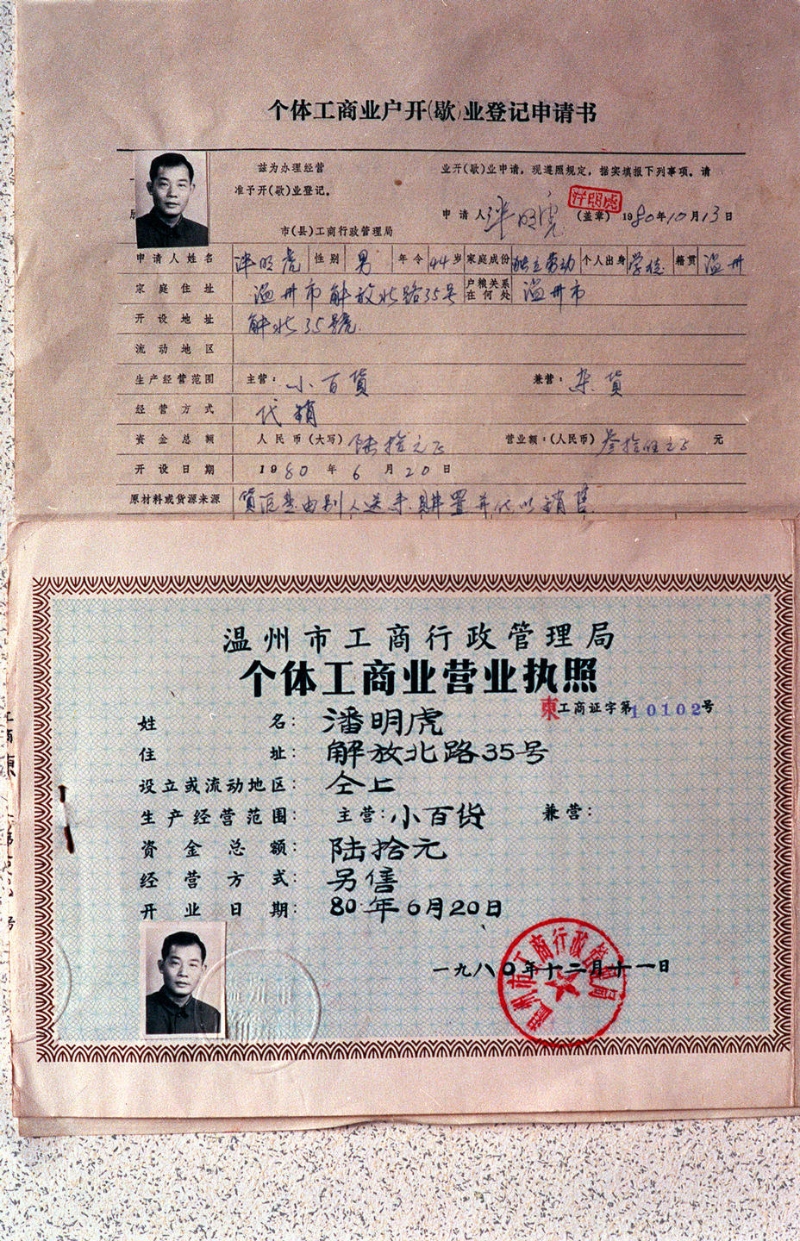 个体工商业户开(歇)业登记申请书
兹为办理经营 业开(歇)业申请，现遵照规定，据实填报下列事项。请
准予开(歇)业登记。
申请人 明虎 (盖章) 1980年10月13日
市(县)工商行政管理局
申请人姓名 明虎 性别 男 年令 44岁 家庭成份 独立劳动 个人出身 学徒 籍贯 温州
家庭住址 温州市解放北路35号 户粮关系在何处 温州市
开设地址 解北35號
流动地区
生产经营范围 主营：小百貨 兼营：杂貨
经营方式 代销
资金总额 人民币(大写) 陆拾元正 营业额：(人民币) 元
开设日期 1980年6月20日
原材料或货源来源 貨源是由别人送来
温州市工商行政管理局
个体工商业营业执照
東工商证字第10102号
姓名：潘明虎
住址：解放北路35号
设立或流动地区：仝上
生产经营范围：主营：小百货 兼营：
资金总额：陆拾元
经营方式：另售
开业日期：80年6月20日
一九八〇年十二月十一日
温州市工商行政管理局